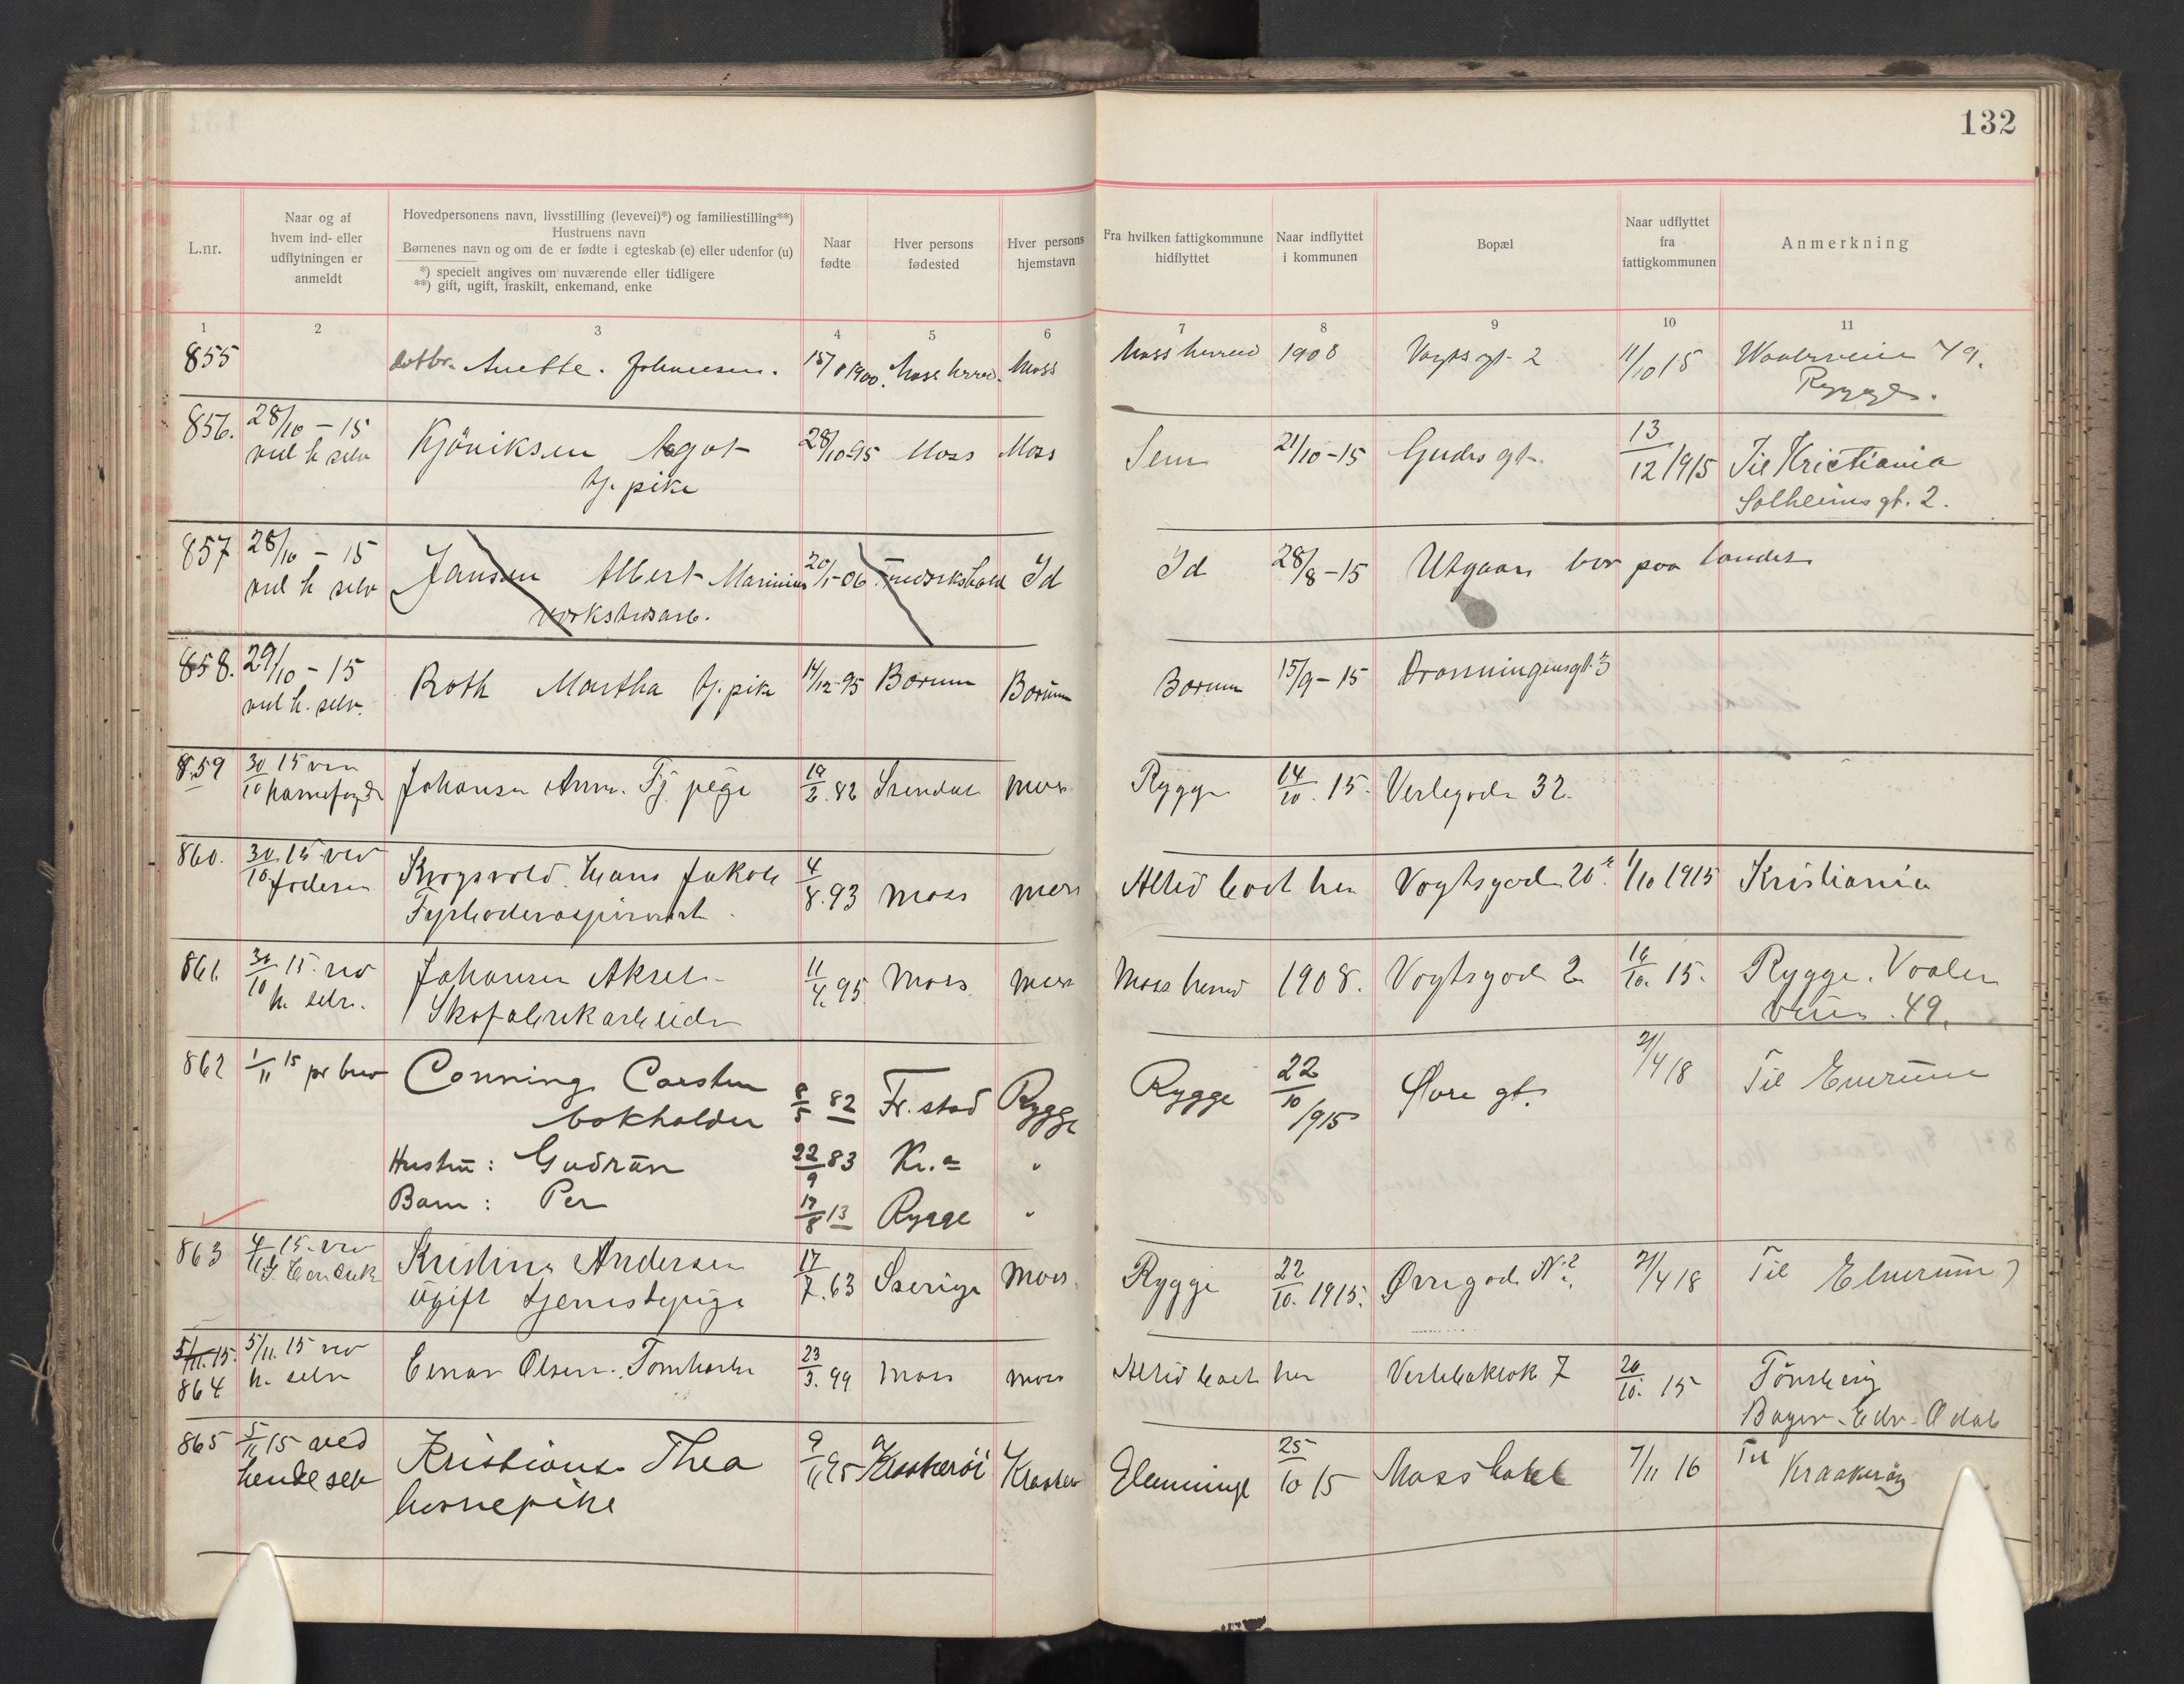 132
L.nr.
Naar og af
hvem ind- eller
udflytningen er
anmeldt
Hovedpersonens navn, livsstilling (levevei)*) og familiestilling**)
Hustruens navn
Børnenes navn og om de er fødte i egteskab (e) eller udenfor (u)
*) specielt angives om nuværende eller tidligere
**) gift, ugift, fraskilt, enkemand, enke
Naar
fødte
Hver persons
fødested
Hver persons
hjemstavn
Fra hvilken fattigkommune
hidflyttet
Naar indflyttet
i kommunen
Bopæl
Naar udflyttet
fra
fattigkommunen
Anmerkning
1 2 3 4 5 6 7 8 9 10 11
855 Anette. Johansen. 15/8 1900. Moss herred. Moss Moss herred 1908 Vogts gt. 2 11/10 15 49.
Rygge.
856. 28/10 - 15 Kjöniksen Aagot 28/10-95 Moss Moss Sem 21/10-15 Gudes gt. 13/12 1915 Til Kristiania
ved h selv tj. pike Solheims gt. 2.
857 28/10 - 15 Jansen Albert Marinius 20/1-06 Fredrikshald Id Id 28/8-15 Utgaar bor paa landet
ved h selv
858. 29/10 - 15 Roth Martha tj. pike 14/12-95 Borum Borum Borum 15/9-15 Dronningensgt. 3
ved h. selv.
859 30/10 15 Johansen Anna. Tj pige 82 Moss Rygge 14/10. 15. Verlegaden 32.
860. 30/10 15 ved Krogsvold. Hans Jakob 4/8.93 Moss Moss Altid boet her Vogtsgaden 20 1/10 1915 Kristiania
861. 30/10 15. ved Johansen Aksel 11/4. 95 Moss Moss Moss herred 1908. Vogtsgad 2 10. 15. Rygge. Vaaler
h. selv. Skofabrikarbeider veien. 49.
862 1/11 15 pr brev Conning Carsten 8/5 82 Fr.stad Rygge Rygge 22/10 1915 Øvre gt. 2/4 18 Til Elverum
bokholder
Hustru: Gudrun 22/9 83 Kr.a "
Barn: Per 17/8 13 Rygge "
863 4/11 15. ved Kristine Andersen 17/7.63 Sverige Moss Rygge 22/10. 1915. Øvregad. No 2 2/4 18 Til Elverum
Ugift tjenestepige
5/11. 15.
864 5/11. 15 ved Einar Olsen. 23/3. 99 Moss Moss Altid boet her Verlebakken 7 10. 15 Tönsberg
h. selv
865 5/11 15 ved Kristiansen Thea 9/11 95 Kraakerøi Kraaker Glemminge 25/10 15 Moss hotel 7/11 16 Til Kraakerøy
hende selv